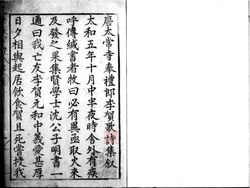 唐太常寺奉禮郎李賀歌詩集叙
太和五年十月中半夜時舍外有疾
呼傳緘書者牧曰必有異亟取火來
及發之果集賢學士沈公子明書一
通曰我亡友李賀元和中義愛甚厚
日夕相與起居飲食賀且死嘗授我